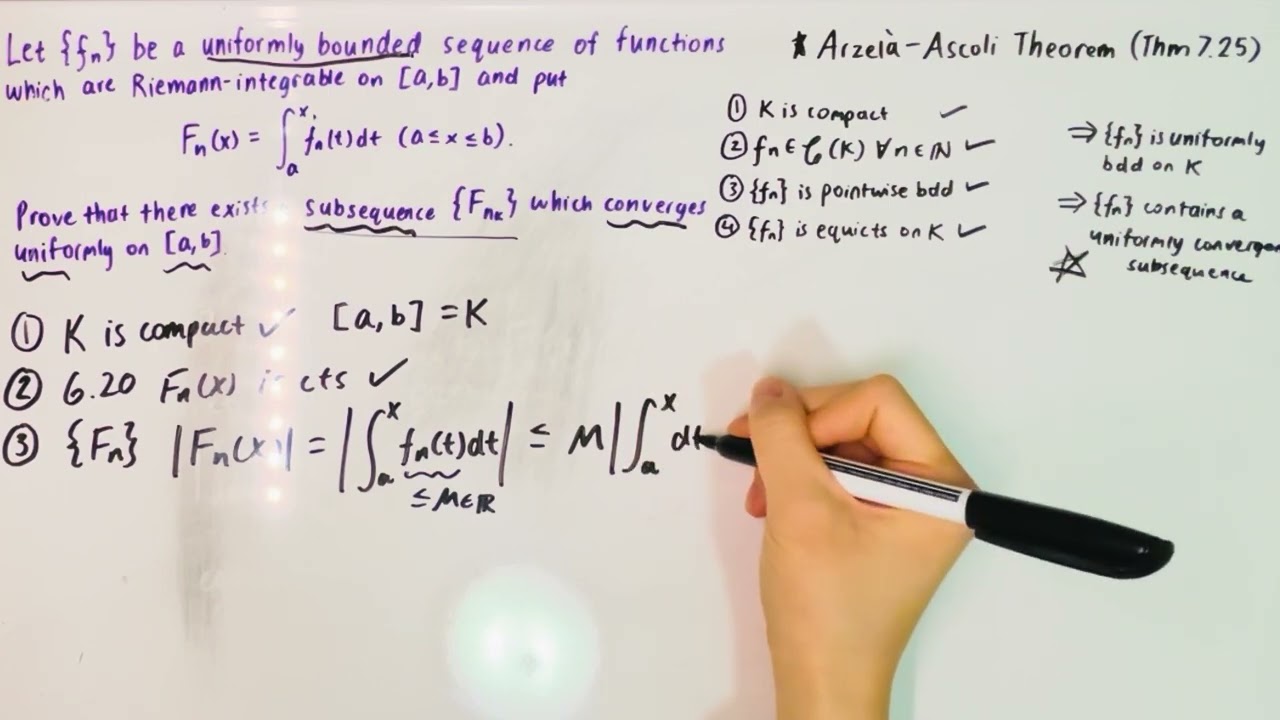 Let {fn} be a uniformly bounded sequence of functions
which are Riemann-integrable on [a,b] and put
Fn(x) = ∫ₐˣ fn(t)dt (a ≤ x ≤ b).
Prove that there exists subsequence {Fnₖ} which converges
uniformly on [a,b].
★ Arzelà-Ascoli Theorem (Thm 7.25)
① K is compact ✓
② fn ∈ C(K) ∀n∈ℕ ✓
③ {fn} is pointwise bdd ✓
④ {fn} is equicts on K ✓
⇒ {fn} is uniformly
bdd on K
⇒ {fn} contains a
uniformly convergen
subsequence
① K is compact ✓ [a,b] = K
② 6.20 Fn(x) is cts ✓
③ {Fn} |Fn(x)| = |∫ₐˣ fn(t)dt| ≤ M|∫ₐˣ dt
≤ M∈ℝ